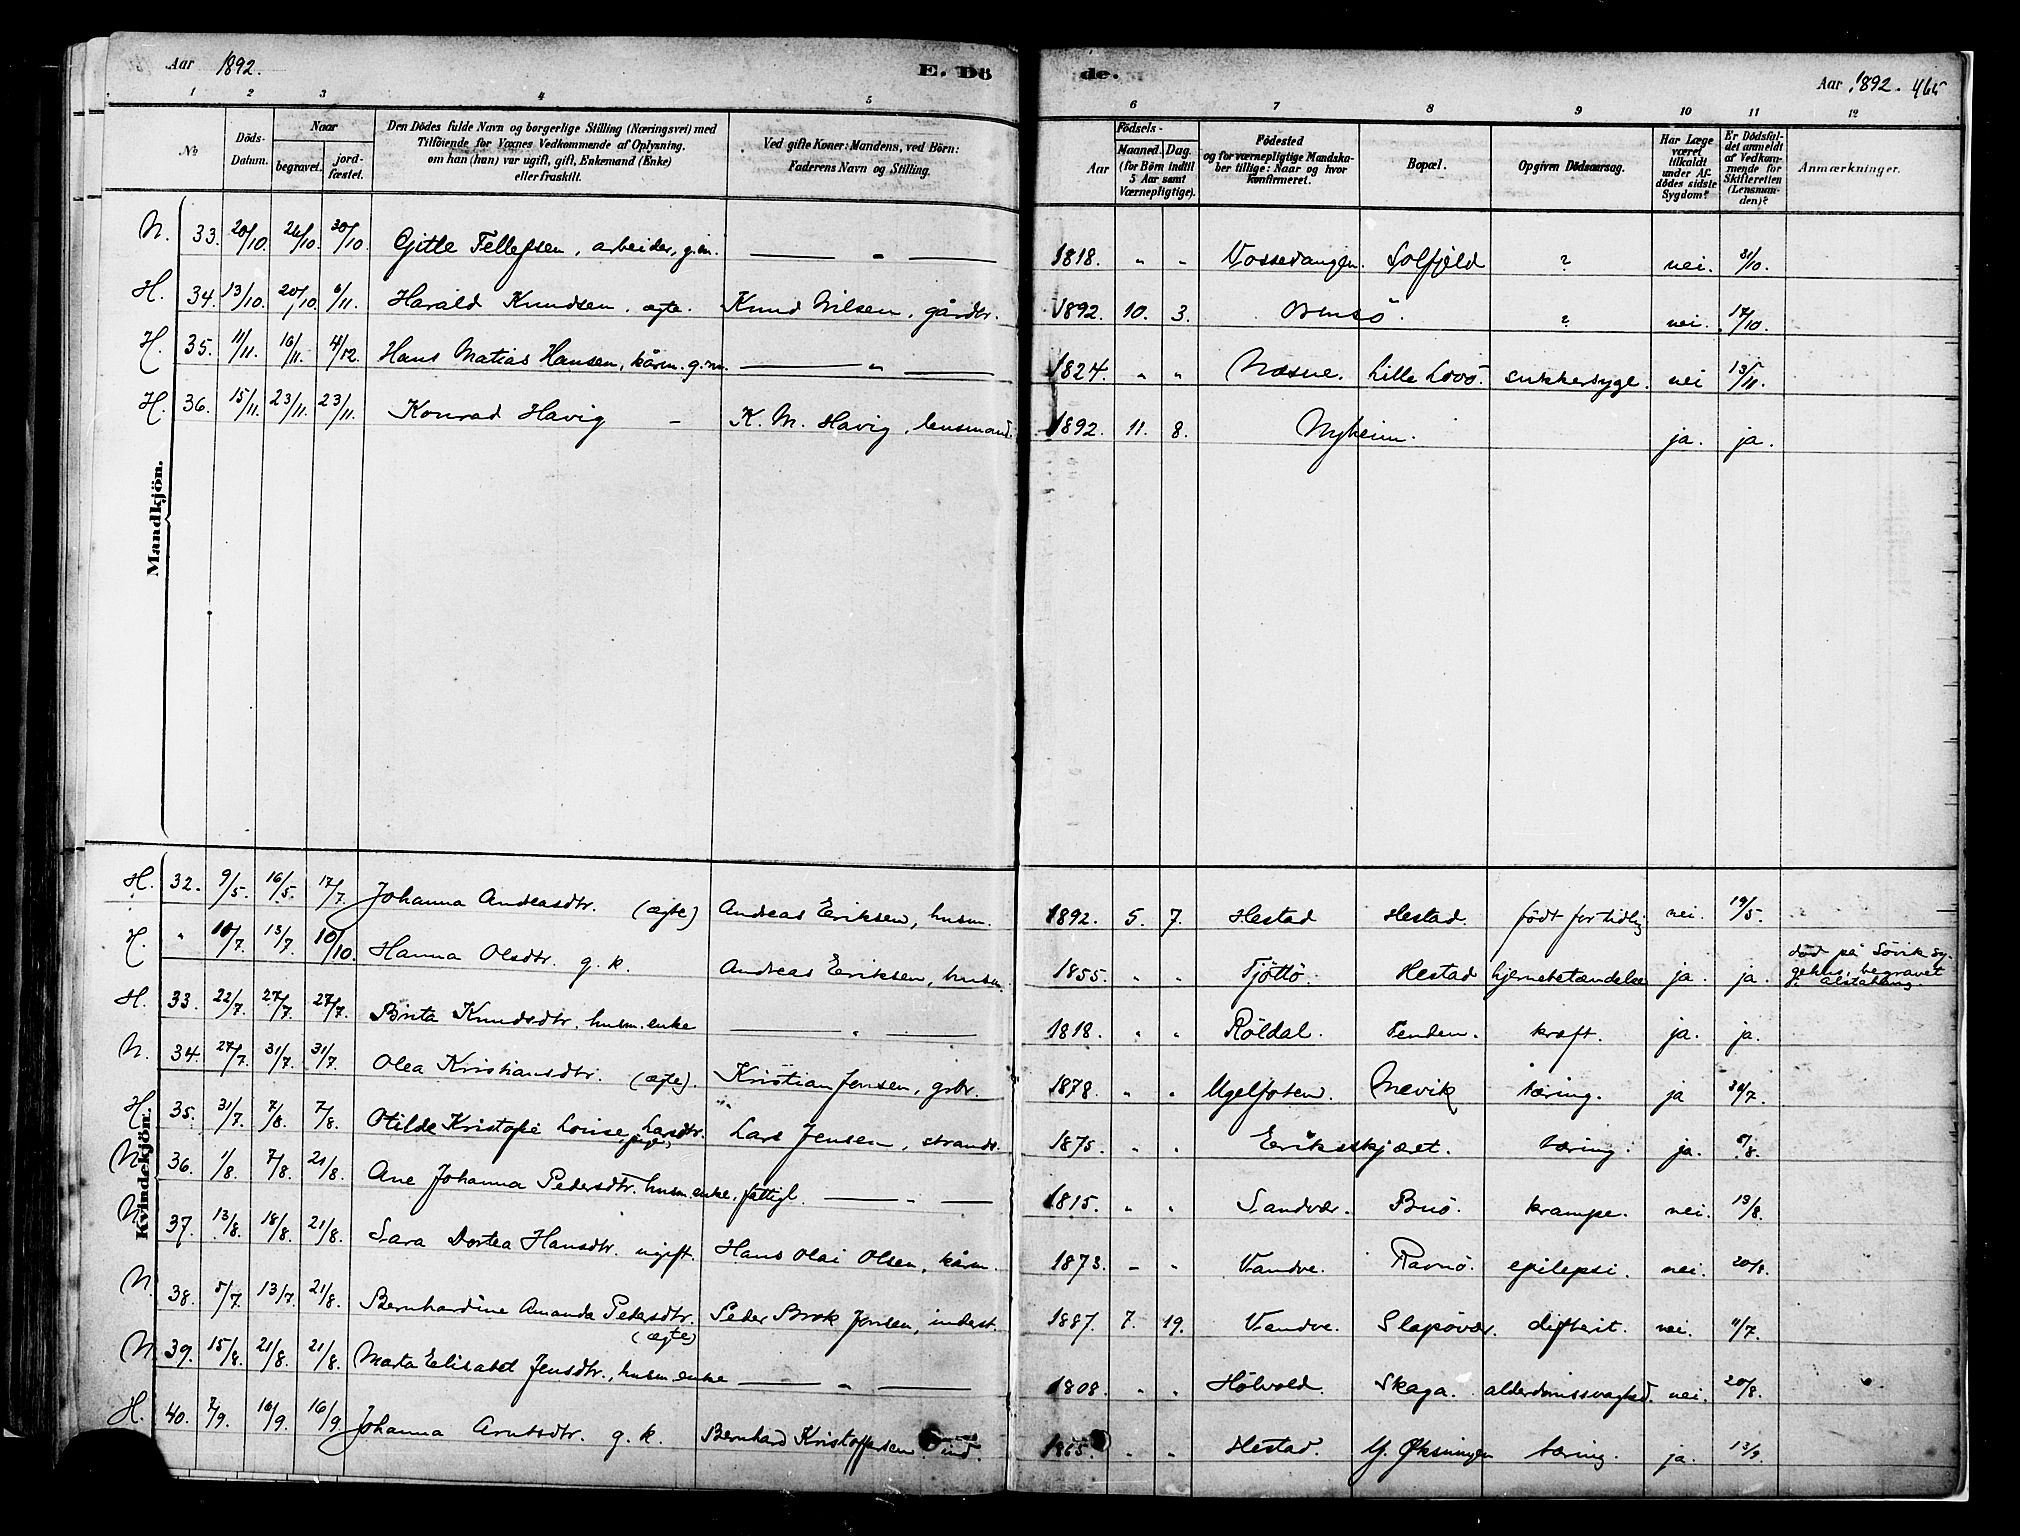 Aar 1892.
E. Dö
de.
Aar 1892. 465
1 2 3 4 5 6 7 8 9 10 11 12
№
Döds-Datum.
Naar
begravet.
jord-fæstet.
Den Dödes fulde Navn og borgerlige Stilling (Næringsvei) med
Tilföiende for Voxnes Vedkommende af Oplysning,
om han (hun) var ugift, gift, Enkemand (Enke)
eller fraskilt.
Ved gifte Koner: Mandens, ved Börn:
Faderens Navn og Stilling.
Födsels-
Aar
Maaned. Dag.
(for Börn indtil
5 Aar samt
Værnepligtige).
Födested
og for værnepligtige Mandska-
ber tillige: Naar og hvor
konfirmeret.
Bopæl.
Opgiven Dödsaarsag.
Har Læge
været
tilkaldt
under Af-
dödes sidste
Sygdom?
Er Dödsfal-
det anmeldt
af Vedkom-
mende for
Skifteretten
(Lensman-
den)?
Anmærkninger.
Mandkjön.
N. 33. 20/10. 26/10. 30/10. Gitle Tellefsen, arbeider, g.m. — „ — 1818. „ „ Vossevangen. Solfjeld ? nei. 31/10.
H. 34. 13/10. 20/10. 6/11. Harald Knudsen. ægte. Knud Nilsen, gårdbr. 1892. 10. 3. ? nei. 17/10.
H. 35. 11/11. 16/11. 4/12. Hans Matias Hansen, kårm. g.m. — „ — 1824. „ „ Næsne. Lille Lovö. sukkersyge. nei 13/11.
H. 36. 15/11. 23/11. 23/11. Konrad Havig — K. M. Havig, lensmand. 1892. 11. 8. Nyheim. ja. ja.
Kvindekjön.
H. 32. 9/5. 16/5. 17/7. Johanna Andreasdtr. (ægte) Andreas Eriksen, husm. 1892. 5. 7. Hestad Hestad. født for tidlig nei. 19/5.
H. „ 10/7. 13/7. 10/10. Hanna Olsdtr. g. k. Andreas Eriksen, husm. 1855. „ „ Tjöttö. Hestad hjernebetændelse ja. ja. død på Søvik sy-
gehus, begravet
p. Alstahaug.
H. 33. 22/7. 27/7. 27/7. Brita Knudsdtr. husm. enke — „ — 1818. „ „ Röldal. Tenden. kræft. ja. ja.
N. 34. 27/7. 31/7. 31/7. Olea Kristiansdtr. (ægte). Kristian Jensen, grbr. 1878. „ „ Ugelfoten. Nævik tæring. ja 30/7.
H. 35. 31/7. 7/8. 7/8. Otilde Kristofie Louise Larsdtr. pige, Lars Jensen, strands. 1875. „ „ Erikskjæret. tæring. ja. 6/8.
N. 36. 1/8. 7/8. 21/8. Ane Johanna Pedersdtr. husm. enke, fattigl. — „ — 1815. „ „ Sandvær. Buö. krampe. nei. 13/8.
N. 37. 13/8. 18/8. 21/8. Sara Dortea Hansdtr. ugift. Hans Olai Olsen, kårm. 1873. „ „ Vandve. Ravnö. epilepsi. nei. 20/8.
N. 38. 5/7. 13/7. 21/8. Bernhardine Amanda Pedersdtr. (ægte) Peder Brok Jensen, inderst. 1887. 7. 19. Vandve. Slapövær. difterit. nei. 11/7.
N. 39. 15/8. 21/8. 21/8. Marta Elisabet Jensdtr., husm. enke — „ — 1808. „ „ Hölvold. Skaga. alderdomssvaghed. nei. 20/8.
H. 40. 7/9. 16/9. 16/9. Johanna Arntsdtr. g. k. Bernhard Kristoffersen ind. 1865. „ „ Hestad. Y. Øksningen tæring. ja. 13/9.